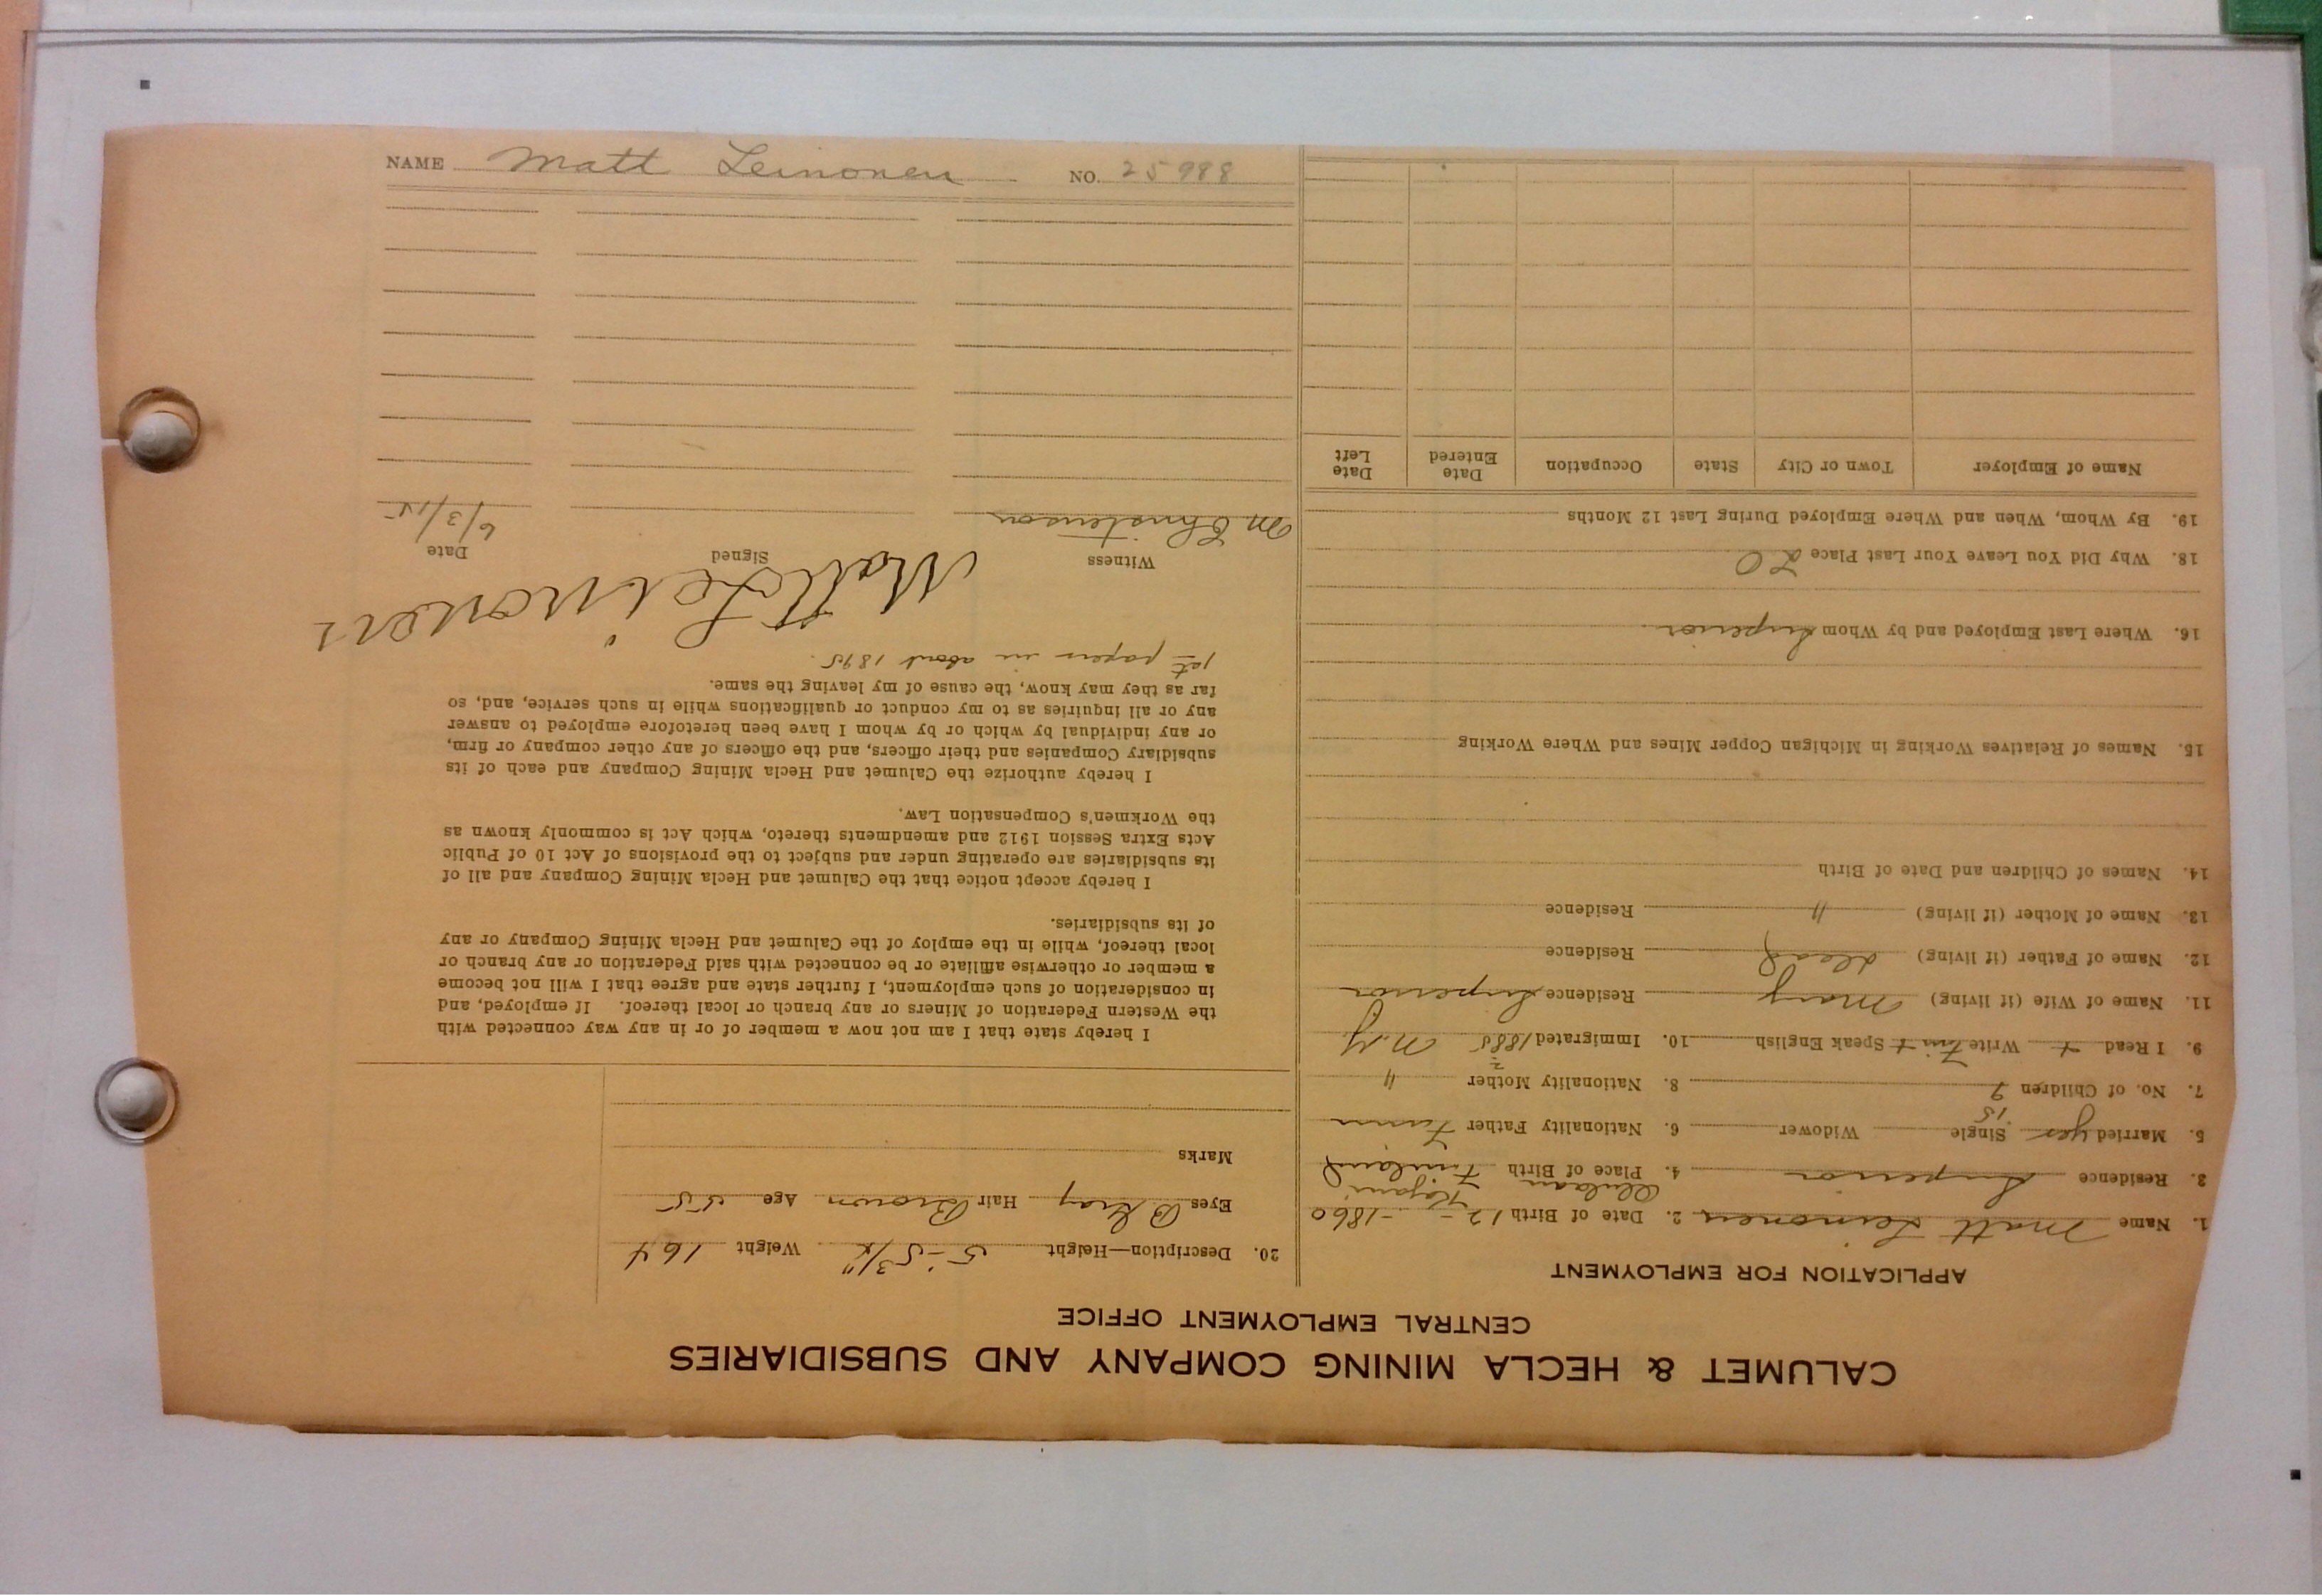 NAME Matt Leinonen NO. 25988
CALUMET & HECLA MINING COMPANY AND SUBSIDIARIES
CENTRAL EMPLOYMENT OFFICE
APPLICATION FOR EMPLOYMENT
1. Name Matt Leinonen 2. Date of Birth 12 - - 1860
Oulaan Kajani
3. Residence Superior 4. Place of Birth Finland
5. Married yes Single Widower 6. Nationality Father Finn
15
7. No. of Children 9 8. Nationality Mother "
9. I Read + Write Finn + Speak English 10. Immigrated 1885 N.Y.
11. Name of Wife (if living) Mary Residence Superior
12. Name of Father (if living) dead Residence
13. Name of Mother (if living) " Residence
14. Names of Children and Date of Birth
15. Names of Relatives Working in Michigan Copper Mines and Where Working
16. Where Last Employed and by Whom Superior
18. Why Did You Leave Your Last Place LO
19. By Whom, When and Where Employed During Last 12 Months
Name of Employer Town or City State Occupation Date Entered Date Left
20. Description—Height 5'-5 3/4" Weight 164
Eyes B Gray Hair Brown Age 55
Marks
I hereby state that I am not now a member of or in any way connected with
the Western Federation of Miners or any branch or local thereof. If employed, and
in consideration of such employment, I further state and agree that I will not become
a member or otherwise affiliate or be connected with said Federation or any branch or
local thereof, while in the employ of the Calumet and Hecla Mining Company or any
of its subsidiaries.
I hereby accept notice that the Calumet and Hecla Mining Company and all of
its subsidiaries are operating under and subject to the provisions of Act 10 of Public
Acts Extra Session 1912 and amendments thereto, which Act is commonly known as
the Workmen's Compensation Law.
I hereby authorize the Calumet and Hecla Mining Company and each of its
subsidiary Companies and their officers, and the officers of any other company or firm,
or any individual by which or by whom I have been heretofore employed to answer
any or all inquiries as to my conduct or qualifications while in such service, and, so
far as they may know, the cause of my leaving the same.
1st papers in about 1895.
Matt Leinonen
Witness Signed Date
M Christenson 6/3/15